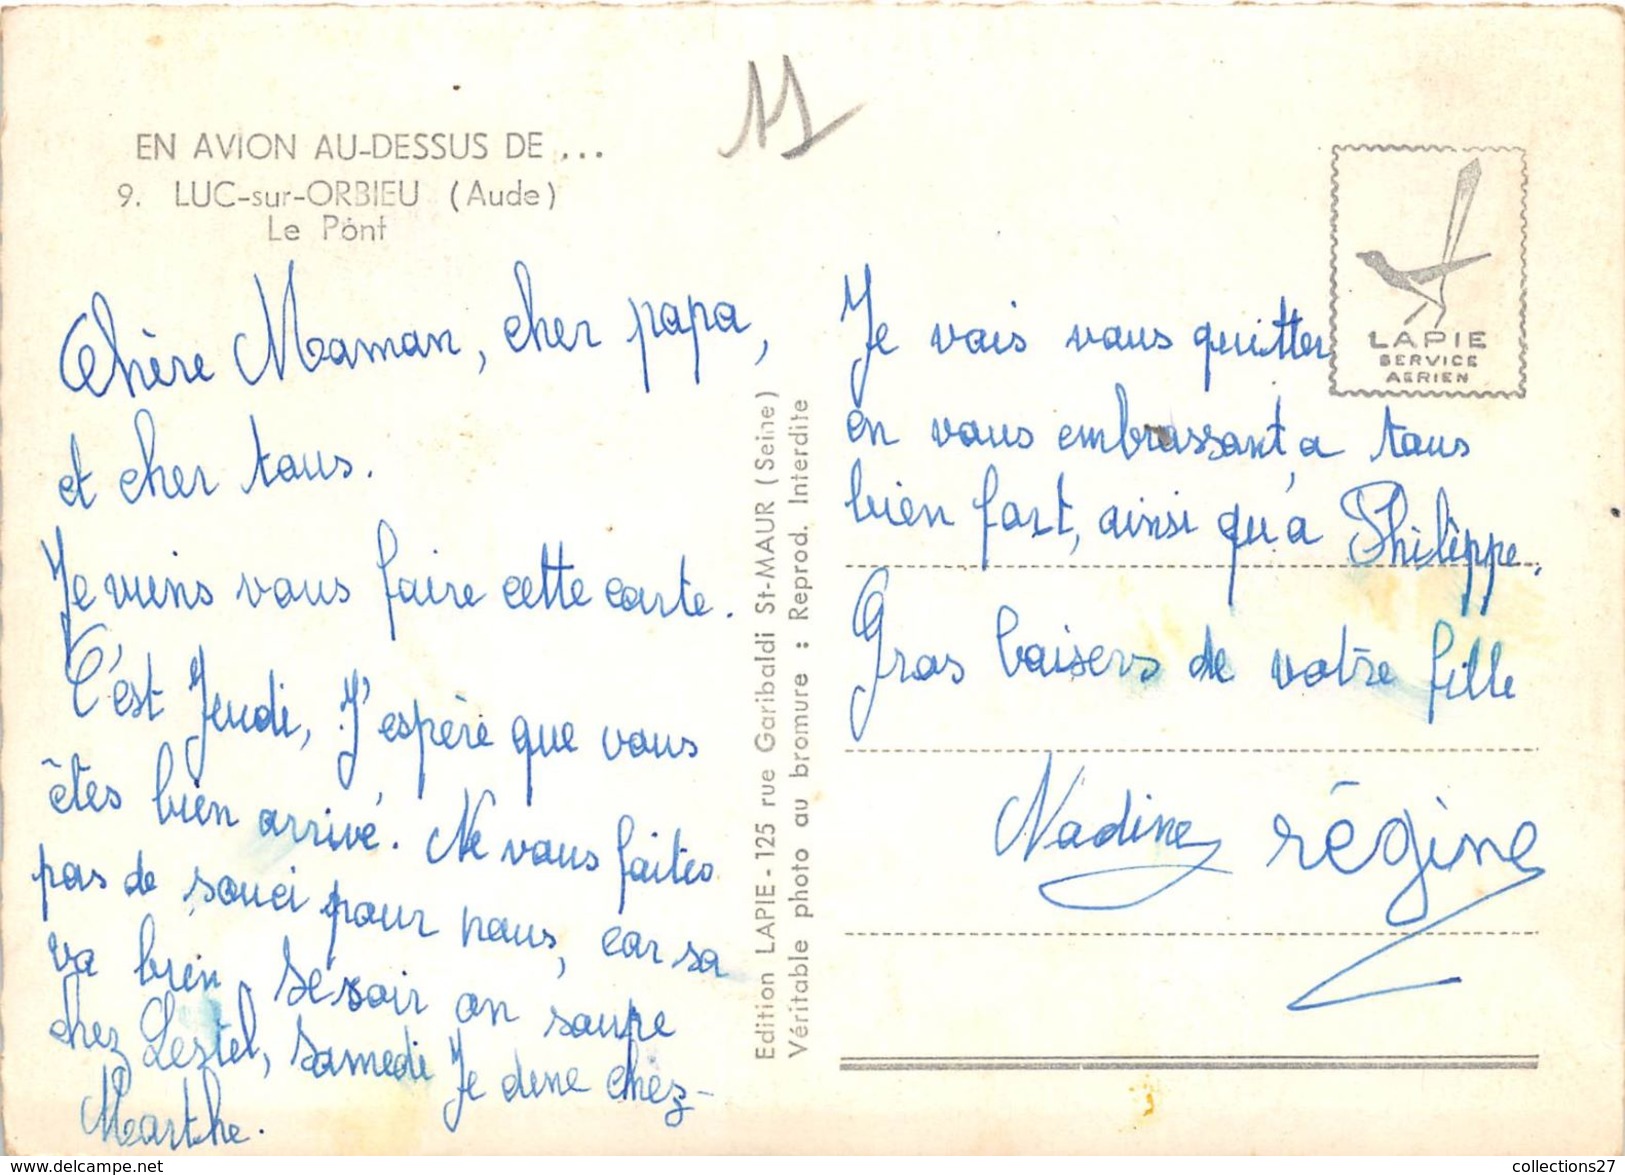 11
EN AVION AU-DESSUS DE ...
9. LUC-sur-ORBIEU (Aude)
Le Pont
Chère Maman, cher papa,
et cher tous.
Je viens vous faire cette carte.
C'est Jeudi, J'espère que vous
êtes bien arrivé. Ne vous faites
pas de souci pour nous, car sa
va bien. Se soir on soupe
chez Lestel, samedi Je dine chez
Marthe.
Edition LAPIE - 125 rue Garibaldi St-MAUR (Seine)
Véritable photo au bromure : Reprod. Interdite
LAPIE
SERVICE
AERIEN
Je vais vous quitter
en vous embrassant a tous
bien fort, ainsi qu'a Philippe.
Gros baisers de votre fille
Nadine régine
collections27